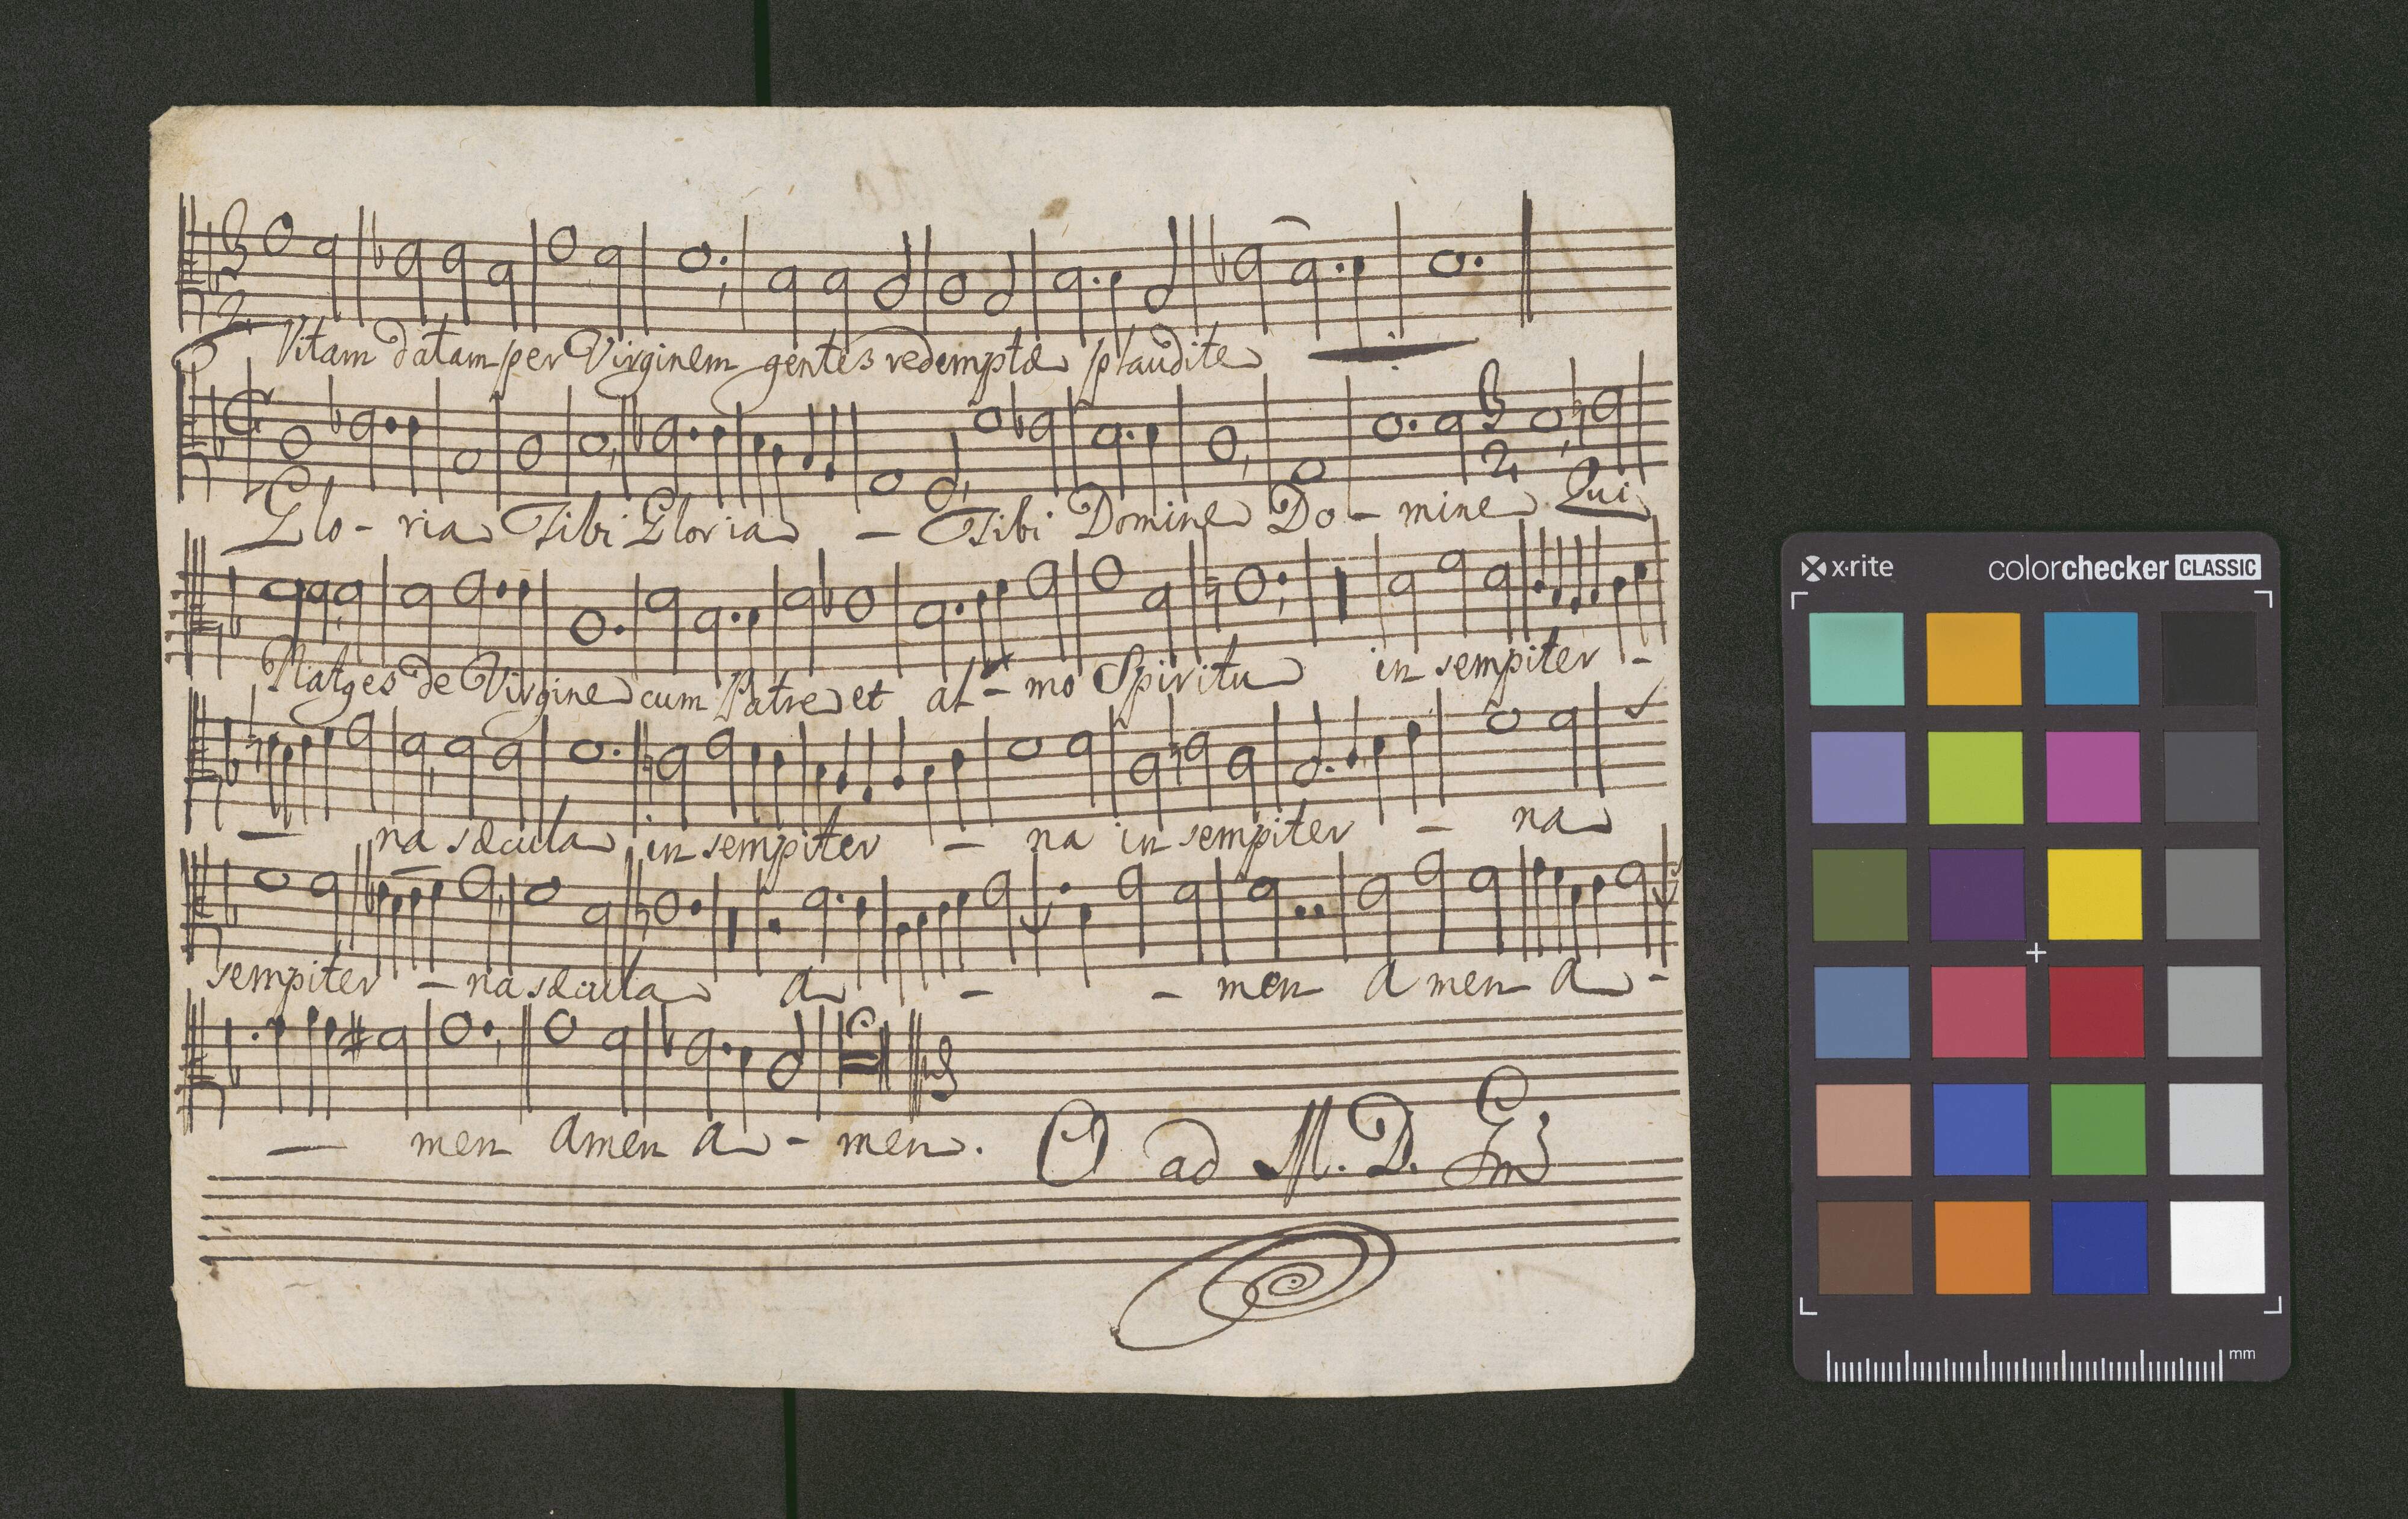 Vitam datam per Virginem gentes redemptæ plaudite
Glo - ria Tibi Gloria - Tibi Domine Do - mine Qui
Natges de Virgine cum Patre et al - mo Spiritu in sempiter -
- na sæcula in sempiter - na in sempiter - na
sempiter - na sæcula a - - men a men a -
- men amen a - men.
O ad M. D. G
x-rite colorchecker CLASSIC
mm